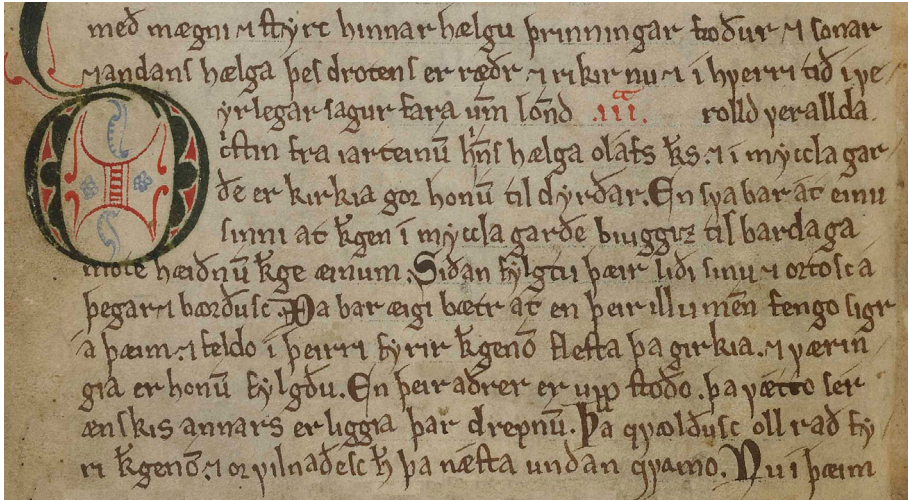 með mægni ⁊ styrc hinnar hælgu þrinningar foður ⁊ sonar
⁊ andans hælga þes drotens er ræðr ⁊ rikir nu ⁊ i hverri tið i ve
Oyrlegar sagur fara um̅ lo̅nd .iii.ᵃ rolld verallda.
cstin fra iarteinu̅ hi̅ns hælga olafs k̅s. ⁊ i myccla gar-
ðe er kirkia gor honu̅ til dyrðar. En sva bar at einu
sinni at k̅gen i myccla garðe biuggiz til bardaga
mote hæiðnu̅ k̅ge æinum. Siðan fylgtu þæir liði sinu ⁊ ortosc a
þegar ⁊ bærðusc. Þa bar æigi bætr at en þeir illu men̅ fengo sigr
a þæim. ⁊ feldo i þeirri fyrir k̅geno̅ flesta þa girkia. ⁊ værin
gia er honu̅ fylgðu. En þeir aðrer er upp stoðo. þa vætto ser
ænskis annars er liggia þar drepnu̅. Þa qvælðusc oll rað fy
ri k̅geno̅. ⁊ orvilnaðesc h̅ þa næsta undan qvamo. Nu i þæim